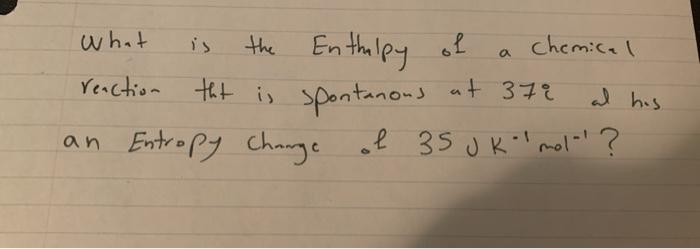 what is the Enthalpy of a chemical
reaction tht is spontanous at 37° d his
an Entropy Change of 35 J K⁻¹ mol⁻¹ ?